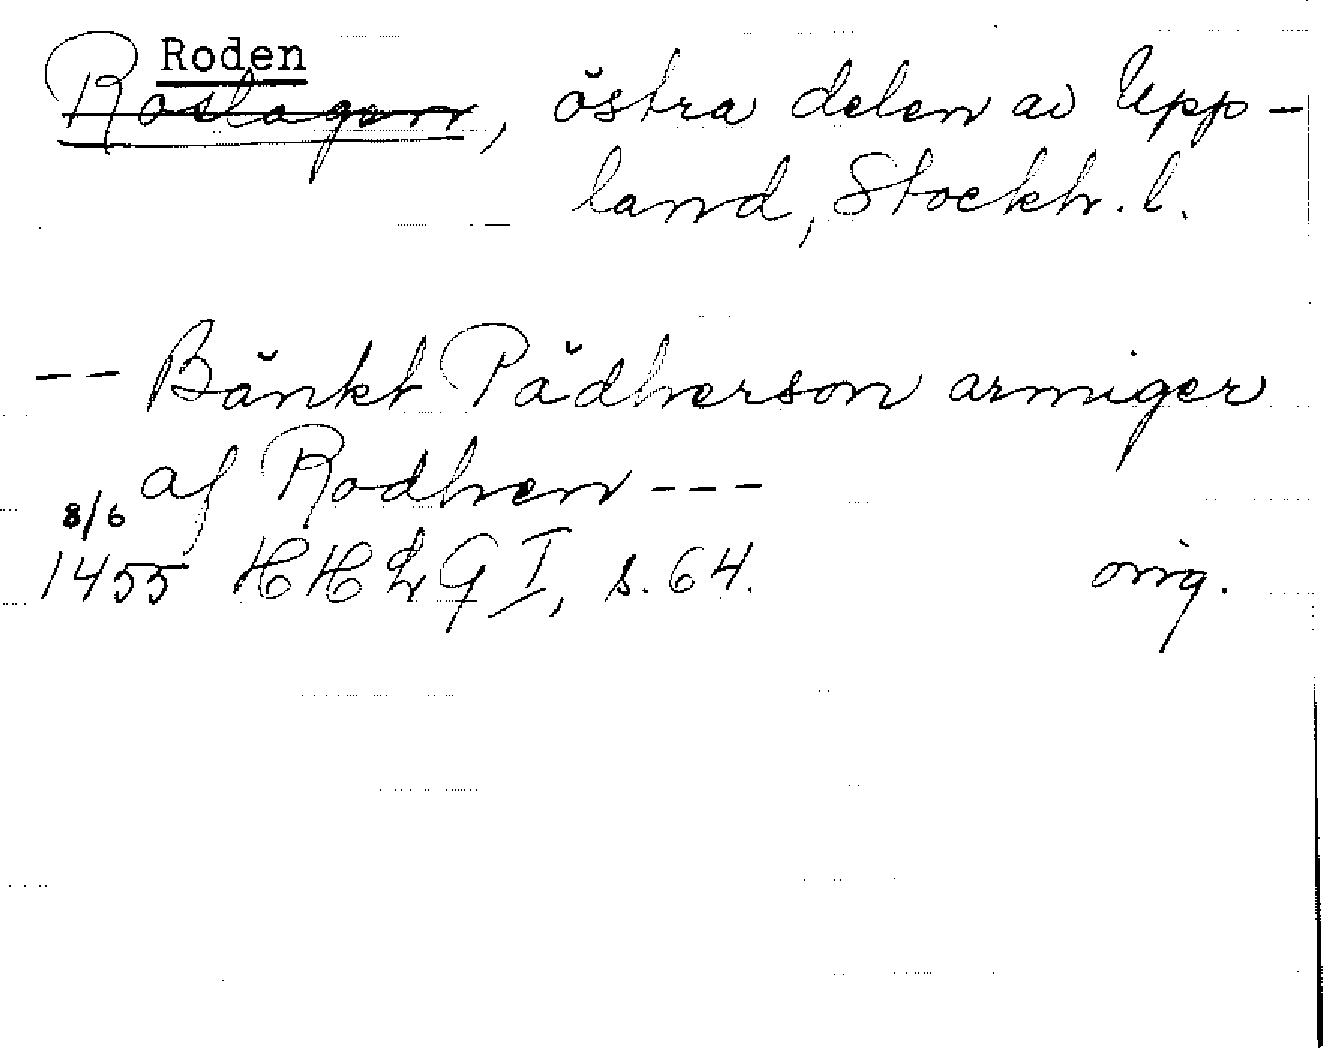 Roden
Roslagen, östra delen av Upp-
land, Stockh. l.
-- Bänkt Pädherson armiger
af Rodhen ---
8/6
1455 HHLG I, s. 64. orig.